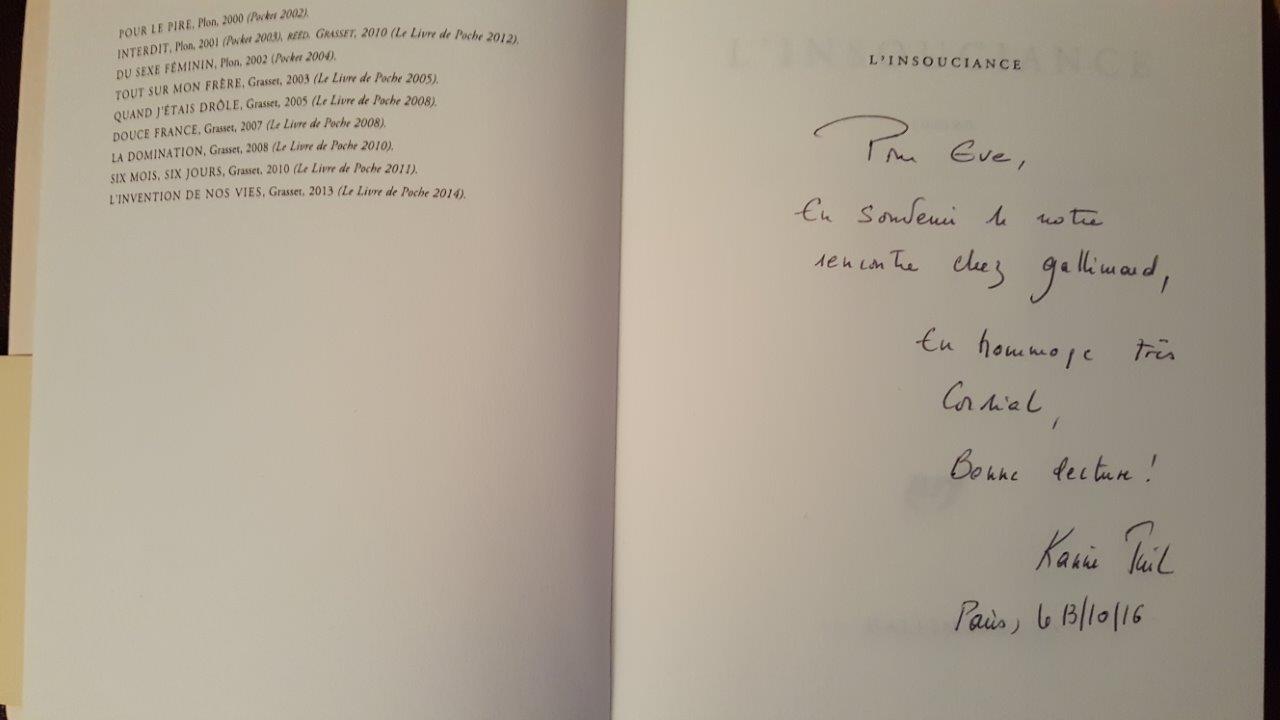 POUR LE PIRE, Plon, 2000 (Pocket 2002).
INTERDIT, Plon, 2001 (Pocket 2003), RÉÉD. GRASSET, 2010 (Le Livre de Poche 2012).
DU SEXE FÉMININ, Plon, 2002 (Pocket 2004).
TOUT SUR MON FRÈRE, Grasset, 2003 (Le Livre de Poche 2005).
QUAND J'ÉTAIS DRÔLE, Grasset, 2005 (Le Livre de Poche 2008).
DOUCE FRANCE, Grasset, 2007 (Le Livre de Poche 2008).
LA DOMINATION, Grasset, 2008 (Le Livre de Poche 2010).
SIX MOIS, SIX JOURS, Grasset, 2010 (Le Livre de Poche 2011).
L'INVENTION DE NOS VIES, Grasset, 2013 (Le Livre de Poche 2014).
L'INSOUCIANCE
Pour Eve,
En souvenir de notre
rencontre chez gallimard,
En hommage très
Cordial,
Bonne lecture !
Karine Tuil
Paris, le 13/10/16